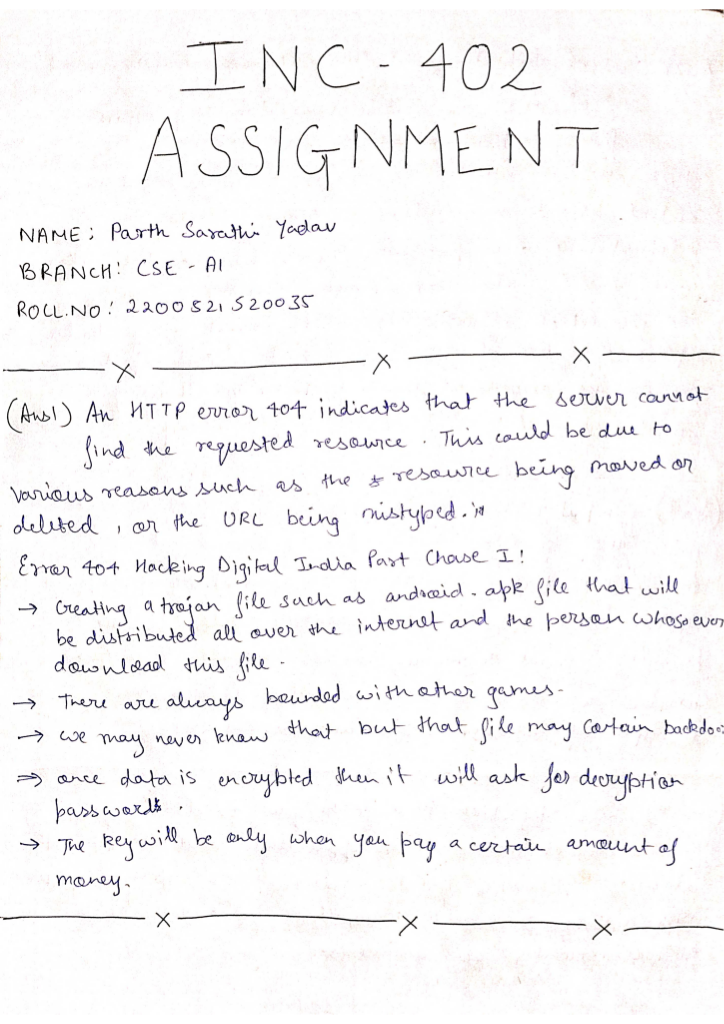 INC - 402
ASSIGNMENT
NAME: Parth Sarathi Yadav
BRANCH: CSE - AI
ROLL.NO: 2200521520035
(Ans1) An HTTP error 404 indicates that the server cannot
find the requested resource. This could be due to
various reasons such as the resource being moved or
deleted, or the URL being mistyped.
Error 404 Hacking Digital India Part Chase I!
→ Creating a trojan file such as android.apk file that will
be distributed all over the internet and the person whosoever
download this file.
→ There are always bounded with other games.
→ we may never know that but that file may contain backdoo
⇒ once data is encrypted then it will ask for decryption
passwords.
→ The key will be only when you pay a certain amount of
money.